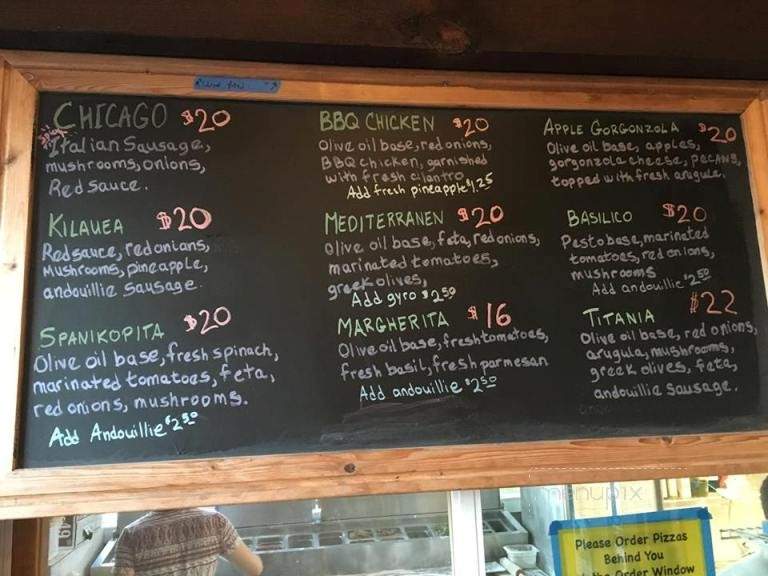 CHICAGO $20
Spicy
Italian Sausage,
mushrooms, onions,
Red sauce.
KILAUEA $20
Red sauce, red onians,
Mushrooms, pineapple,
andouillie sausage.
SPANIKOPITA $20
Olive oil base, fresh spinach,
marinated tomatoes, feta,
red onions, mushrooms.
Add Andouillie $2.50
BBQ CHICKEN $20
Olive oil base, red onions,
BBQ chicken, garnished
with fresh cilantro
Add fresh pineapple $1.25
MEDITERRANEN $20
Olive oil base, feta, red onions,
marinated tomatoes,
greek olives,
Add gyro $2.50
MARGHERITA $16
Olive oil base, fresh tomatoes,
fresh basil, fresh parmesan
Add andouillie $2.50
APPLE GORGONZOLA $20
Olive oil base, apples,
gorgonzola cheese, pecans,
topped with fresh arugula.
BASILICO $20
Pesto base, marinated
tomatoes, red onions,
mushrooms
Add andouillie $2.50
TITANIA $22
Olive oil base, red onions,
arugula, mushrooms,
greek olives, feta,
andouillie sausage.
menupix
Please Order Pizzas
Behind You
Order Window